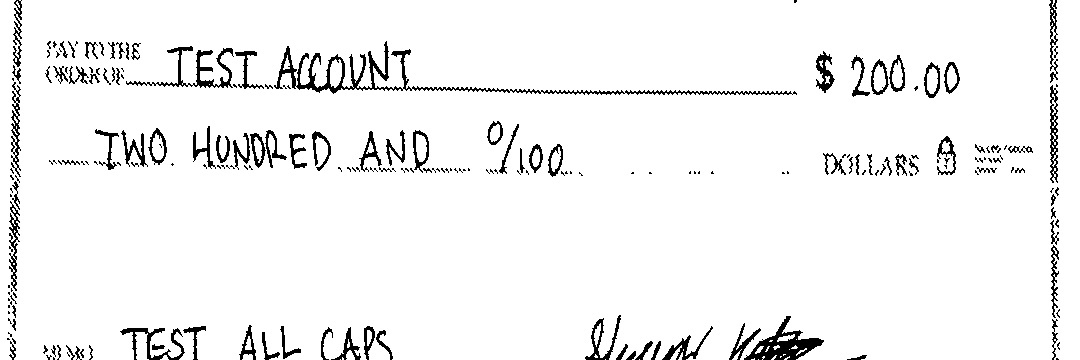 PAY TO THE
ORDER OF TEST ACCOUNT $ 200.00
TWO HUNDRED AND 0/100 DOLLARS
MEMO TEST ALL CAPS